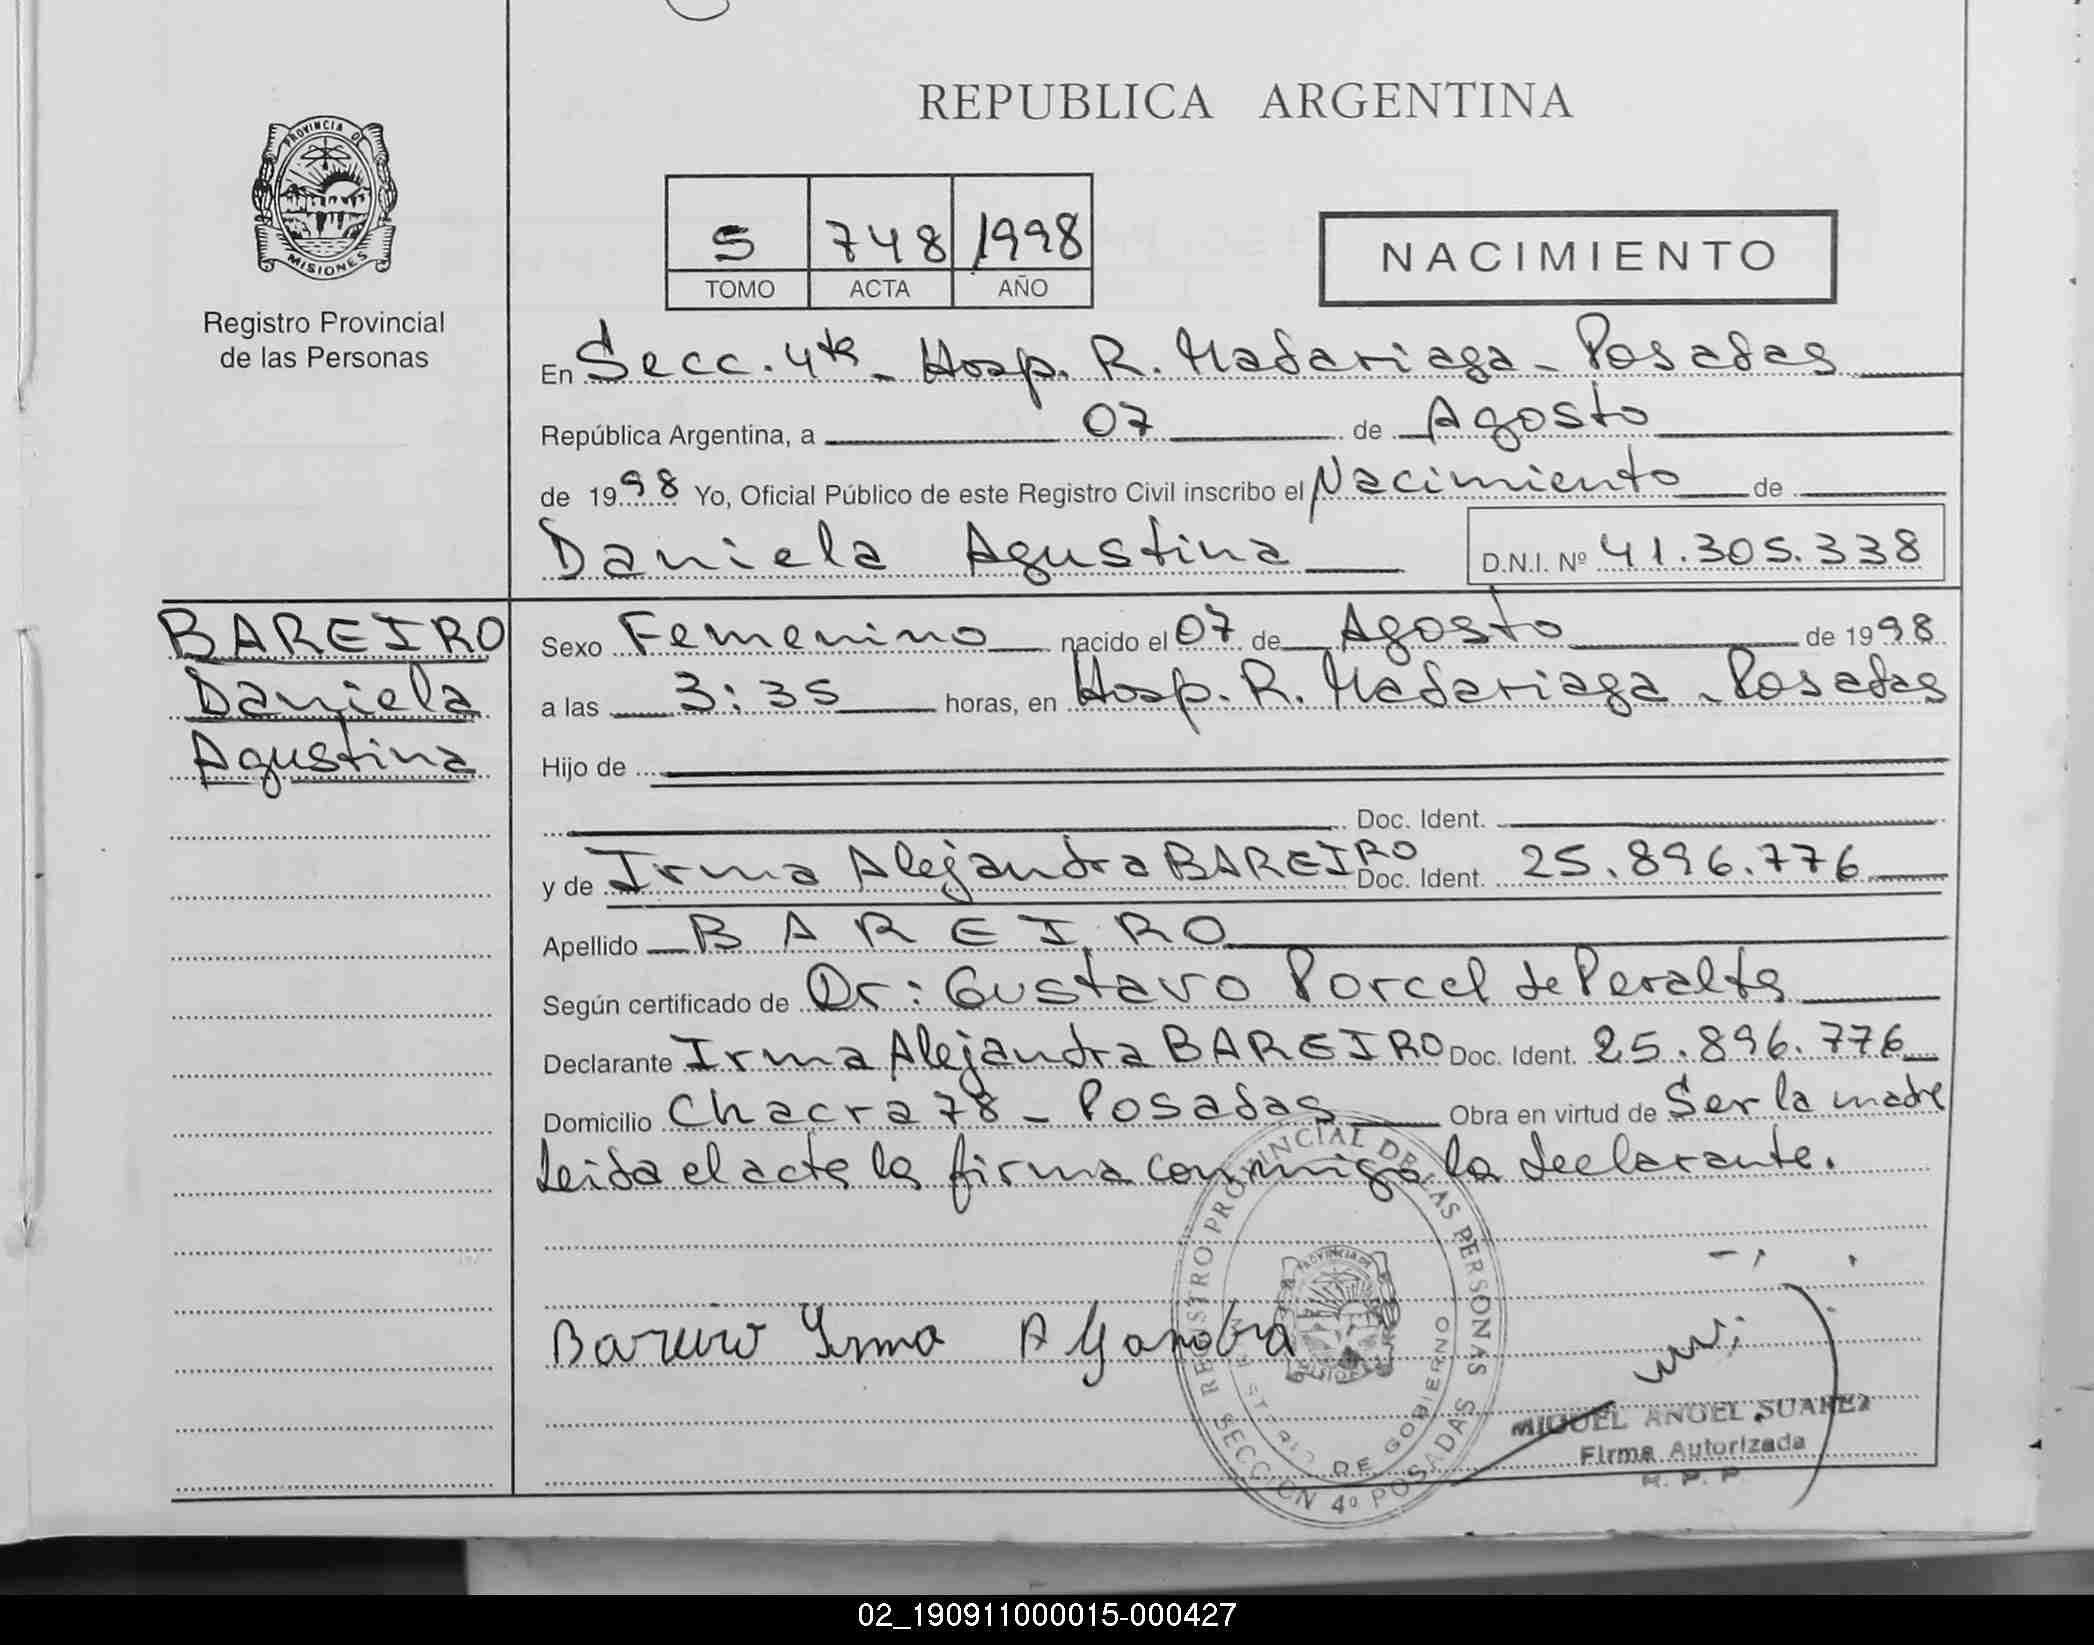 REPUBLICA ARGENTINA
PROVINCIA DE
MISIONES
Registro Provincial
de las Personas
5 748 1998
TOMO ACTA AÑO
NACIMIENTO
En Secc. 4ta - Hosp. R. Madariaga - Posadas
República Argentina, a 07 de Agosto
de 1998 Yo, Oficial Público de este Registro Civil inscribo el Nacimiento de
Daniela Agustina D.N.I. Nº 41.305.338
BAREIRO
Daniela
Agustina
Sexo Femenino nacido el 07 de Agosto de 1998
a las 3:35 horas, en Hosp. R. Madariaga - Posadas
Hijo de
Doc. Ident.
y de Irma Alejandra BAREIRO Doc. Ident. 25.896.776
Apellido BAREIRO
Según certificado de Dr: Gustavo Porcel de Peralta
Declarante Irma Alejandra BAREIRO Doc. Ident. 25.896.776
Domicilio Chacra 78 - Posadas Obra en virtud de Ser la madre
Leida el acta la firma conmigo la declarante.
REGISTRO PROVINCIAL DE LAS PERSONAS
MINISTERIO DE GOBIERNO
SECCION 4º POSADAS
PROVINCIA DE
MISIONES
Bareiro Irma
MIGUEL ANGEL SUAREZ
Firma Autorizada
R. P. P.
02_190911000015-000427